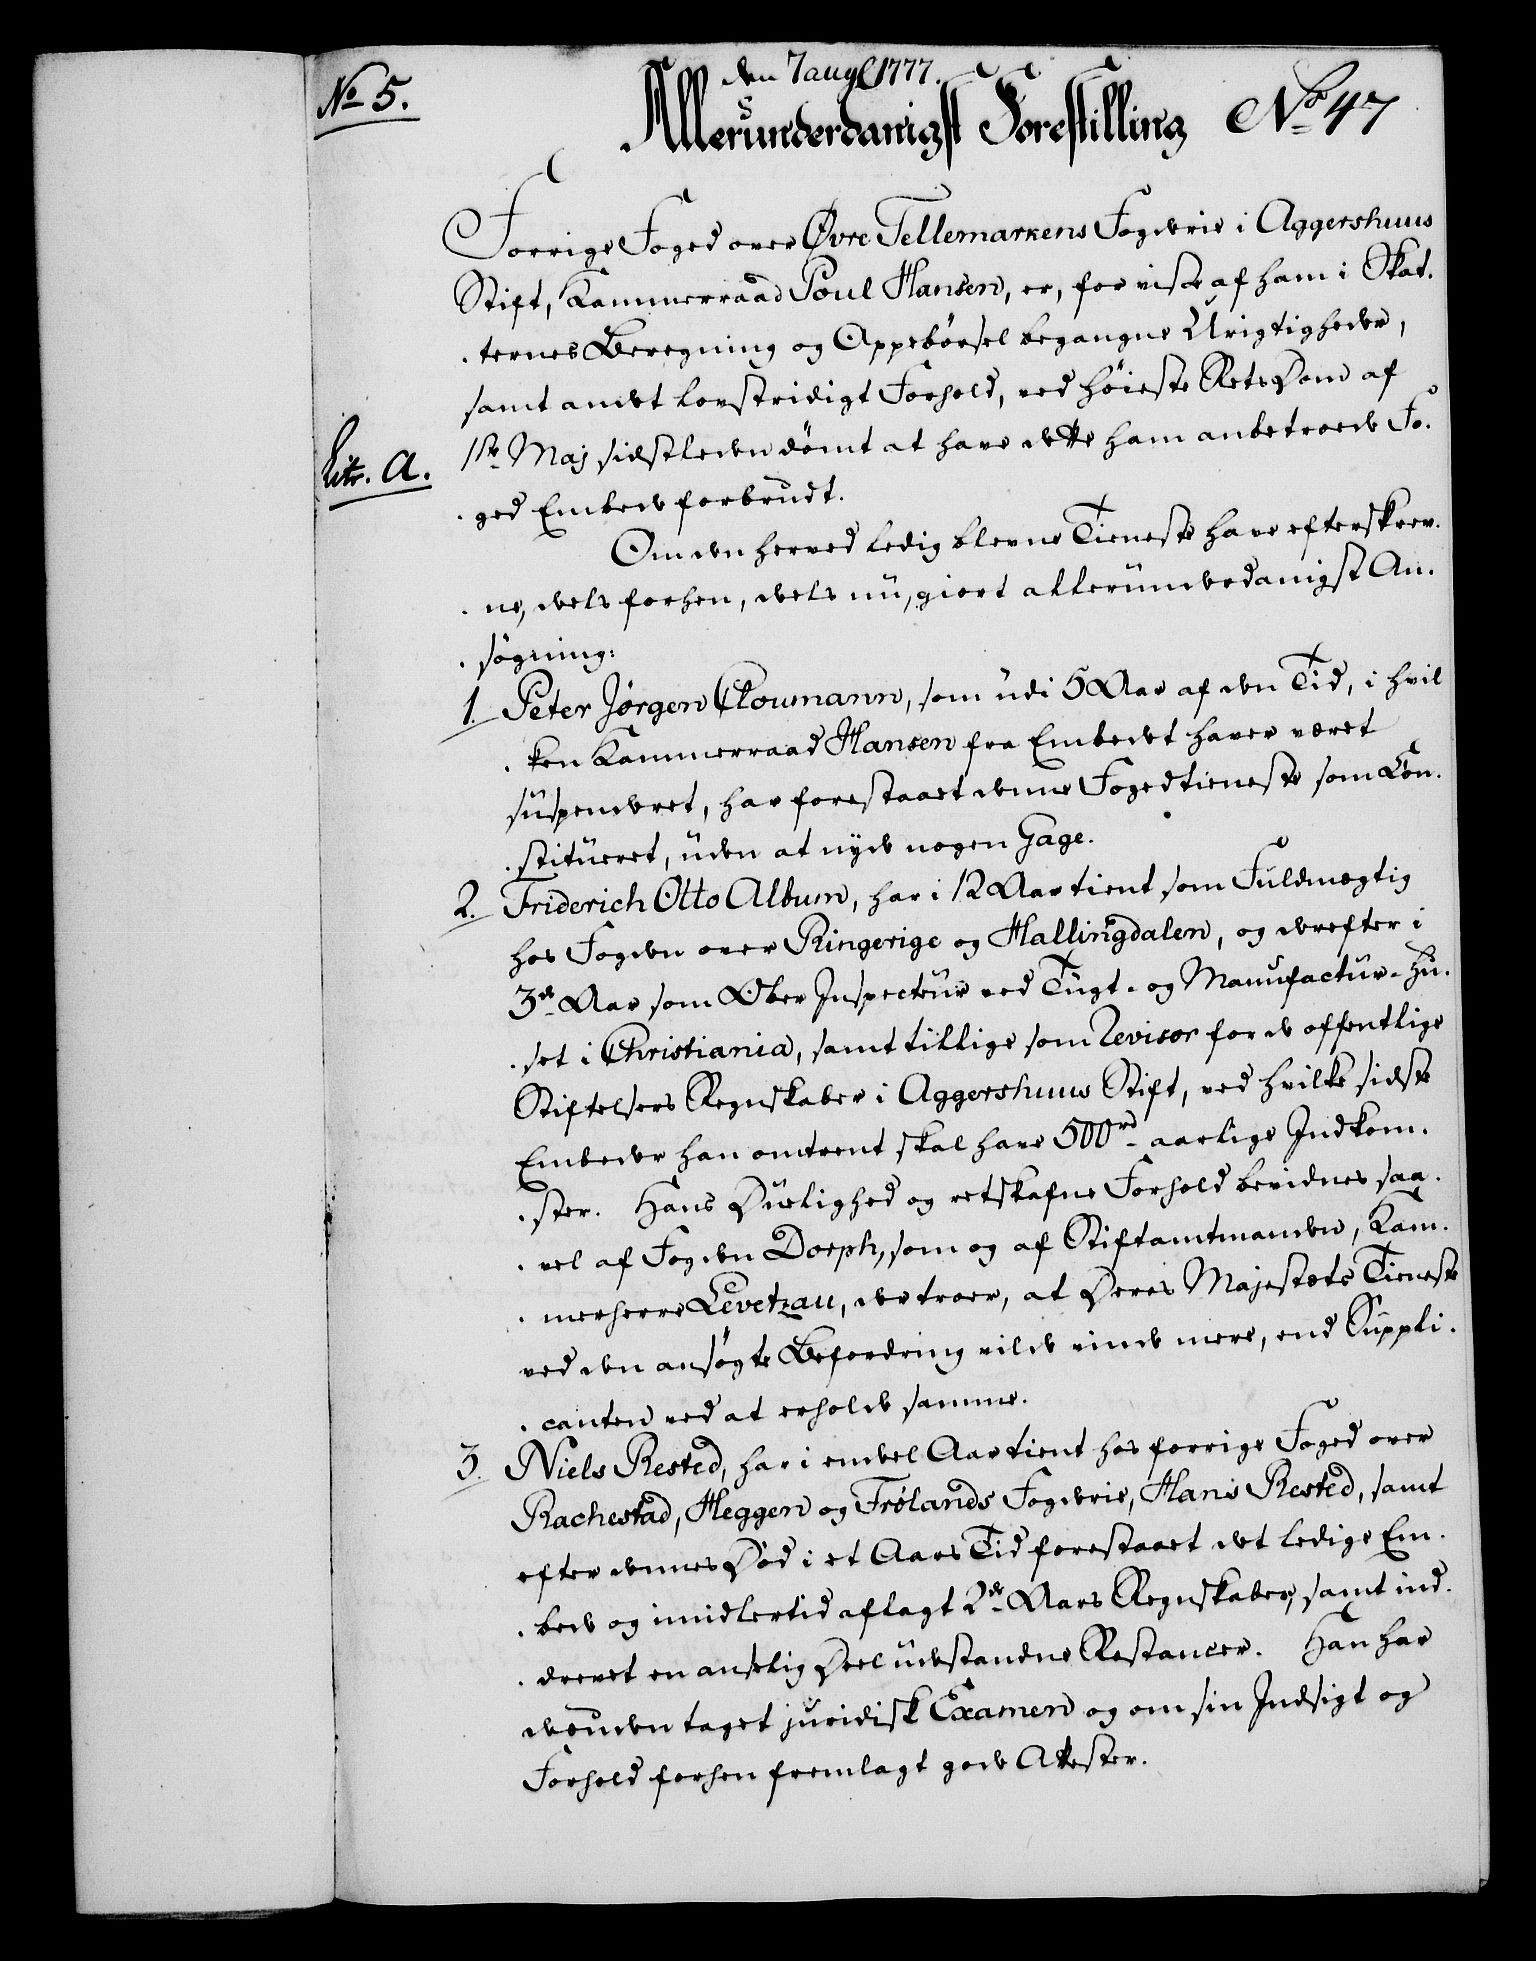 No 5.
den 7 augl 1777.
Allerunderdanigst Forestilling No 47
Forrige Foged over Øvre Tellemarkens Fogderie i Aggershuus
Stift, Kammerraad Poul Hansen, er, for visse af ham i Skat-
-ternes Beregning og Oppebörsel begangne Urigtigheder,
samt andet lovstridigt Forhold, ved Höieste Rets Dom af
1ste Maj sidstleden dömt at have dette ham anbetroede Fo-
Litr. A.
-ged Embede forbrudt.
Om den herved ledig blevne Tieneste have efterskrev-
-ne, deels forhen, deels nu, giort allerunderdanigst An-
-søgning:
1. Peter Jørgen Cloumann, som udi 5 Aar af den Tid, i hvil
-ken Kammerraad Hansen fra Embedet haver været
suspenderet, har forestaaet denne Fogedtieneste som Con-
-stitueret, uden at nyde nogen Gage.
2. Friderich Otto Album, har i 12 Aar tient som Fuldmægtig
hos Fogden over Ringerige og Hallingdalen, og derefter i
3de Aar som Ober Inspecteur ved Tugt- og Manufactur-Hu-
-set i Christiania, samt tillige som Revisor for de offentlige
Stiftelsers Regnskaber i Aggershuus Stift, ved hvilke sidste
Embeder han omtrent skal have 500rd aarlige Indkom-
-ster. Hans Duelighed og retskafne Forhold bevidnes saa-
-vel af Fogden Dorph, som og af Stiftamtmanden, Kam-
-merherre Levetzau, der troer, at Deres Majestæts Tieneste
ved den ansøgte Befordring vilde vinde mere, end Suppli-
-canten ved at erholde samme.
3. Niels Rested, har i endeel Aar tient hos forrige Foged over
Rachestad, Heggen og Frølands Fogderie, Hans Rested, samt
efter dennes Død i et Aars Tid forestaaet det ledige Em-
-bede og imidlertid aflagt 2de Aars Regnskaber, samt ind-
-drevet en anselig Deel udestaaende Restancer. Han har
desuden taget juridisk Examen og om sin Indsigt og
Forhold forhen fremlagt gode Attester.